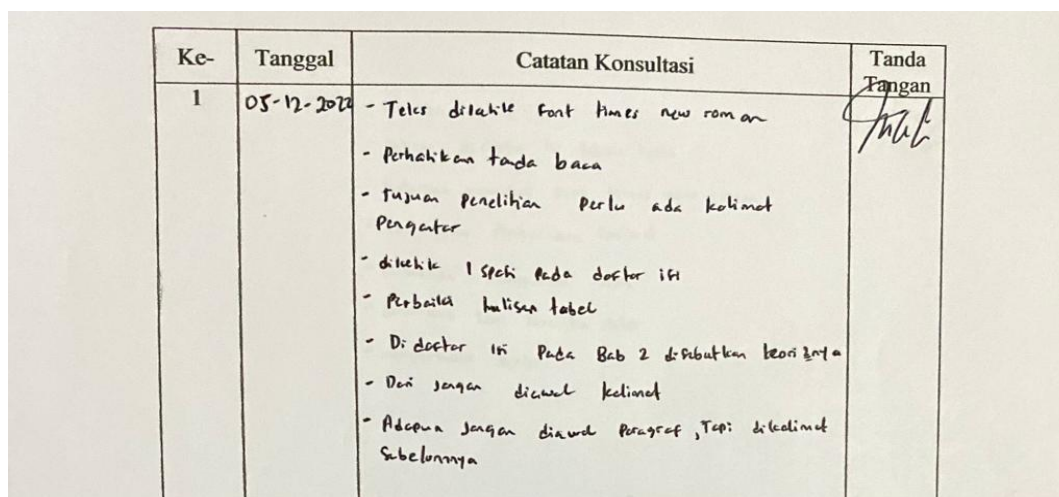 Ke- Tanggal Catatan Konsultasi Tanda Tangan
1 05-12-2022 - Teks diketik font times new roman
- Perhatikan tanda baca
- tujuan penelitian perlu ada kalimat
Pengantar
- diketik 1 spasi pada daftar isi
- Perbaiki tulisan tabel
- Di daftar isi pada Bab 2 disebutkan teori2nya
- Dari jangan diawal kalimat
- Adapun jangan diawal paragraf, Tapi dikalimat
Sebelumnya